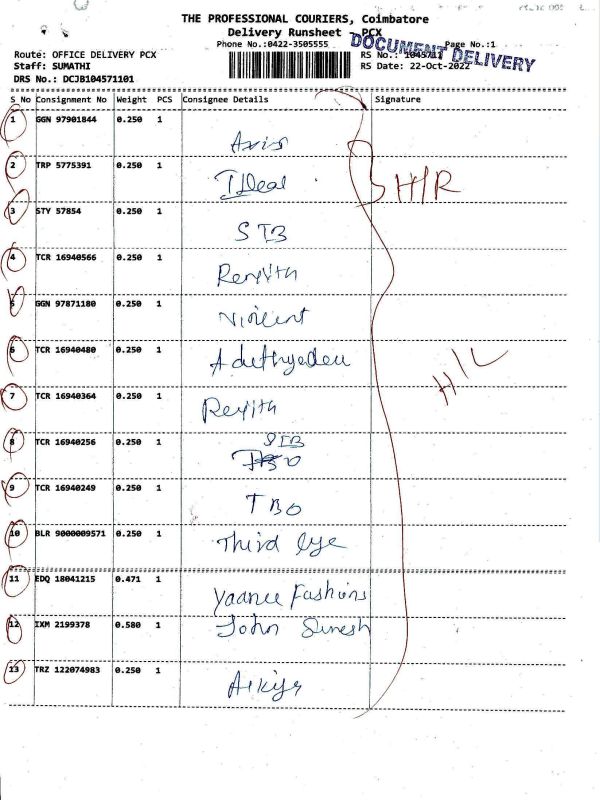 THE PROFESSIONAL COURIERS, Coimbatore
Delivery Runsheet - PCX
Phone No.:0422-3505555 Page No.:1
DOCUMENT DELIVERY
Route: OFFICE DELIVERY PCX RS No.:
Staff: SUMATHI RS Date: 22-Oct-2022
DRS No.: DCJB104571101
S No Consignment No Weight PCS Consignee Details Signature
1 GGN 97901844 0.250 1
Axis
2 TRP 5775391 0.250 1
Ideal H/R
3 STY 57854 0.250 1
STB
4 TCR 16940566 0.250 1
Renjith
5 GGN 97871180 0.250 1
Vincent
6 TCR 16940480 0.250 1
H/L
7 TCR 16940364 0.250 1
Renjith
8 TCR 16940256 0.250 1
STB
9 TCR 16940249 0.250 1
TBO
10 BLR 9000009571 0.250 1
Third Eye
11 EDQ 18041215 0.471 1
Yaanee Fashions
12 IXM 2199378 0.580 1
John Dinesh
13 TRZ 122074983 0.250 1